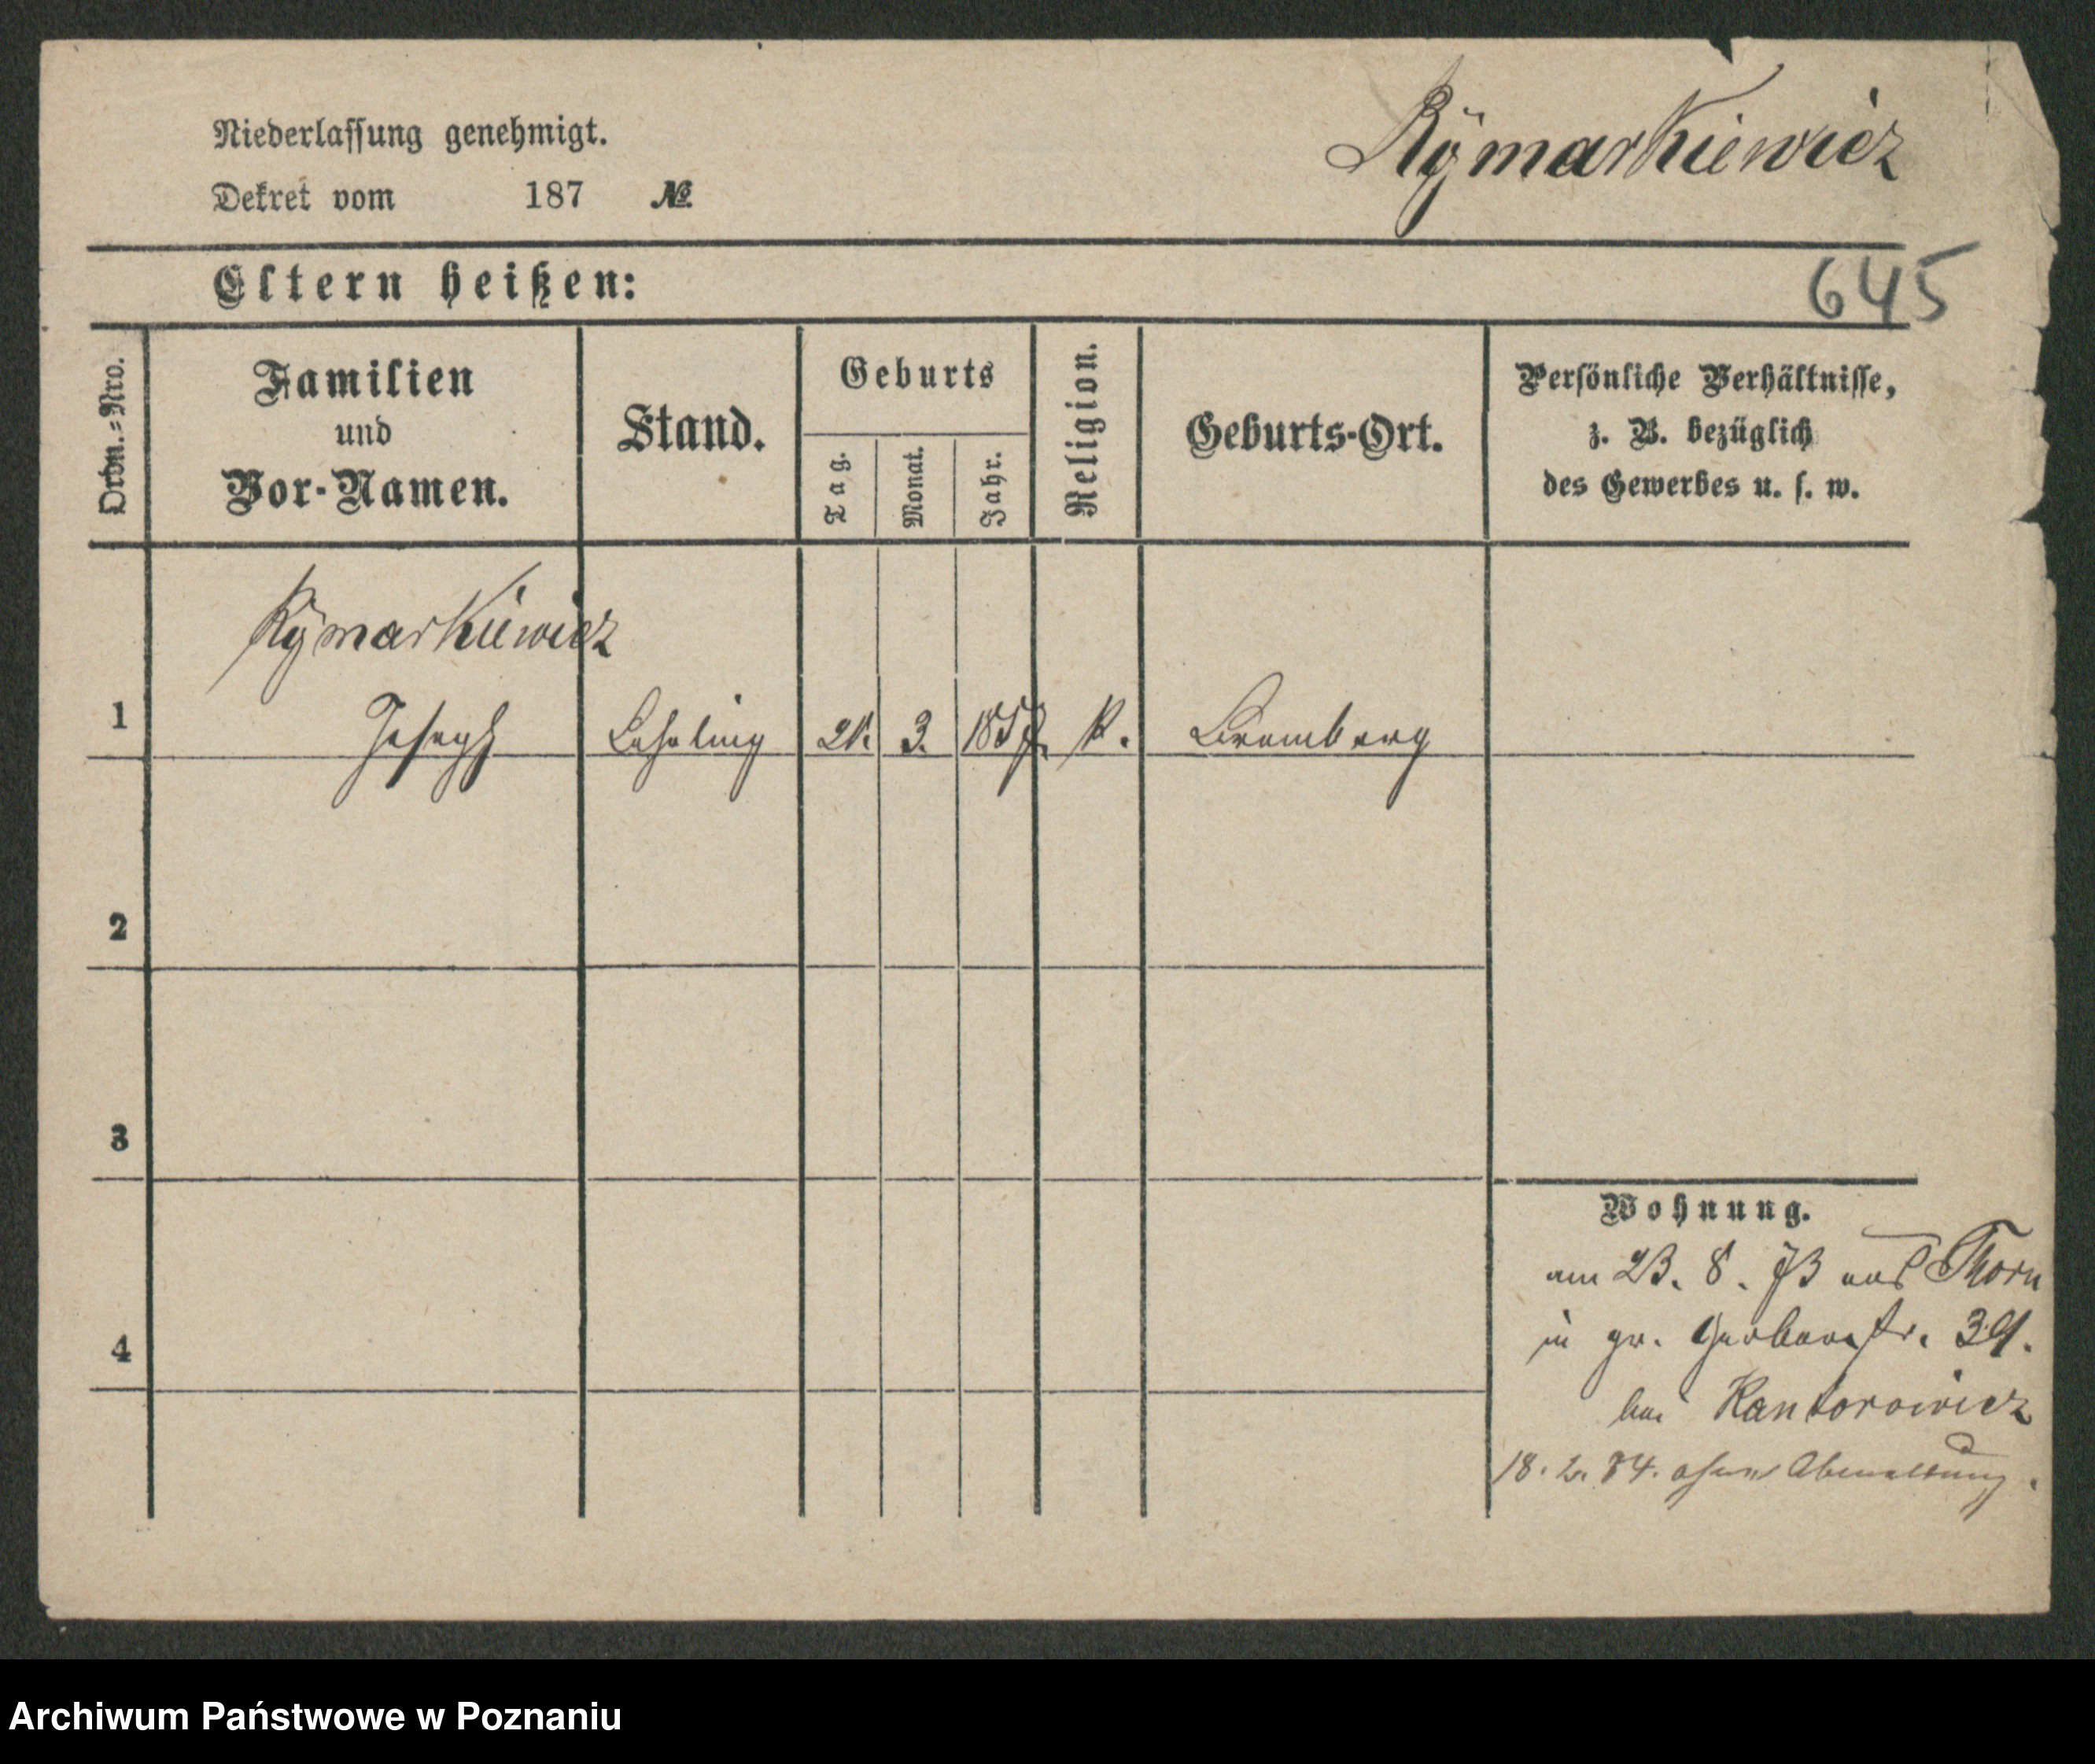 Niederlassung genehmigt.
Dekret vom 187 №
Rÿmarkiewicz
645
Eltern heißen:
Ordn.-Nro.
Familien
und
Vor-Namen.
Stand.
Geburts
Tag.
Monat.
Jahr.
Religion.
Geburts-Ort.
Persönliche Verhältnisse,
z. B. bezüglich
des Gewerbes u. s. w.
Rÿmarkiewicz
1 Joseph Lehrling 21. 3. 1857. K. Bromberg
2
3
4
Wohnung.
am 23. 8. 73 aus Thorn
in gr. Gerberstr. 39.
bei Kantorowicz
18. 2. 84. ohne Abmeldung.
Archiwum Państwowe w Poznaniu